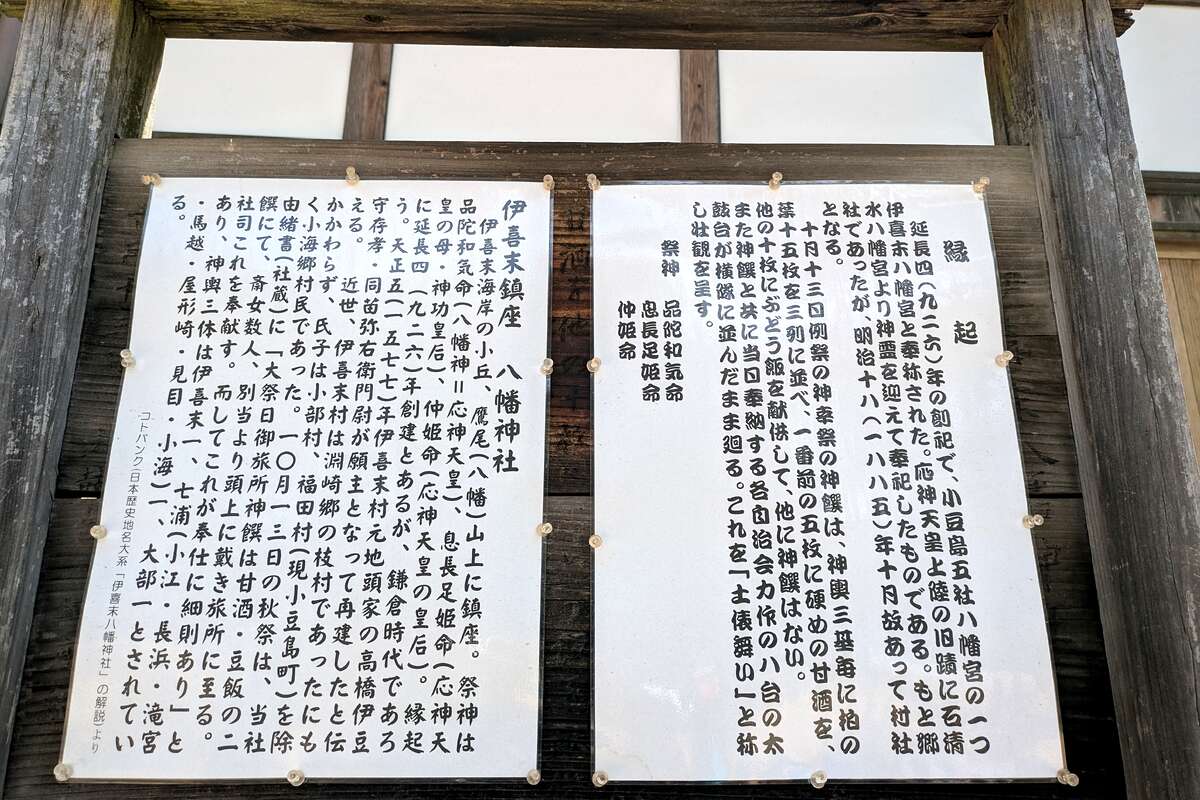 縁起
延長四(九二六)年の創祀で、小豆島五社八幡宮の一つ
伊喜末八幡宮と奉祢された。応神天皇上陸の旧蹟に石清
水八幡宮より神霊を迎えて奉祀したものである。もと郷
社であったが、明治十八(一八八五)年十月故あって村社
となる。
十月十三日例祭の神幸祭の神饌は、神輿三基毎に柏の
葉十五枚を三列に並べ、一番前の五枚に硬めの甘酒を、
他の十枚にぶどう飯を献供して、他に神饌はない。
また神饌と共に当日奉納する各自治会力作の八台の太
鼓台が横隊に並んだまま廻る。これを「土俵舞い」と祢
し壮観を呈す。
祭神 品陀和気命
息長足姫命
仲姫命
伊喜末鎮座 八幡神社
伊喜末海岸の小丘、鷹尾(八幡)山上に鎮座。祭神は
品陀和気命(八幡神=応神天皇)、息長足姫命(応神天
皇の母・神功皇后)、仲姫命(応神天皇の皇后)。縁起
に延長四(九二六)年創建とあるが、鎌倉時代であろ
う。天正五(一五七七)年伊喜末村元地頭家の高橋伊豆
守存孝・同苗弥右衛門尉が願主となって再建したと伝
える。近世、伊喜末村は渕崎郷の枝村であったにも
かかわらず、氏子は小部村、福田村(現小豆島町)を除
く小海郷村民であった。一〇月一三日の秋祭は、当社
由緒書(社蔵)に「大祭日御旅所神饌は甘酒・豆飯の二
饌にて、斎女数人、別当より頭上に戴き旅所に至る。
社司これを奉献す。而してこれが奉仕に細則あり」と
あり、神輿三体は伊喜末一、七浦(小江・長浜・滝宮
・馬越・屋形崎・見目・小海)一、大部一とされてい
る。
コトバンク(日本歴史地名大系「伊喜末八幡神社」の解説)より